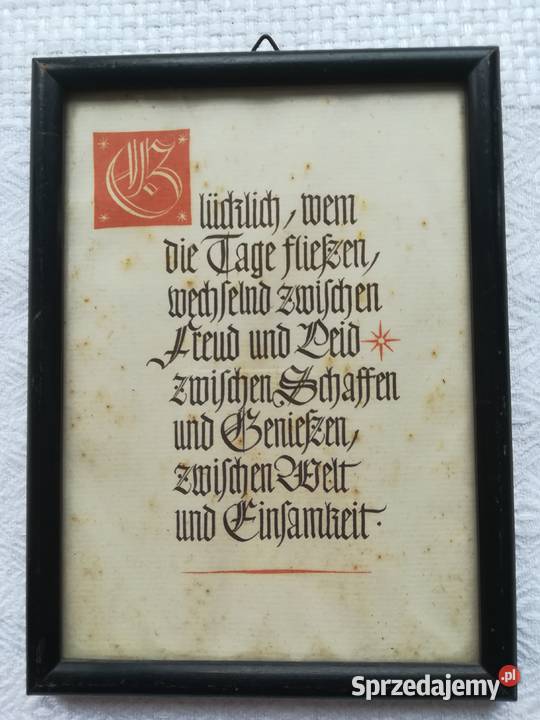 Glücklich, wem
die Tage fließen,
wechselnd zwischen
Freud und Leid
zwischen Schaffen
und Genießen,
zwischen Welt
und Einsamkeit.
Sprzedajemy.pl